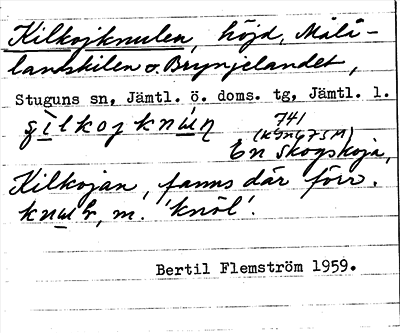 Kilkojknulen, höjd, Målå-
landskilen o. Brynjelandet,
Stuguns sn, Jämtl. ö. doms. tg, Jämtl. l.
741
En skogskoja,
Kilkojan, fanns där förr.
m. 'knöl'.
Bertil Flemström 1959.